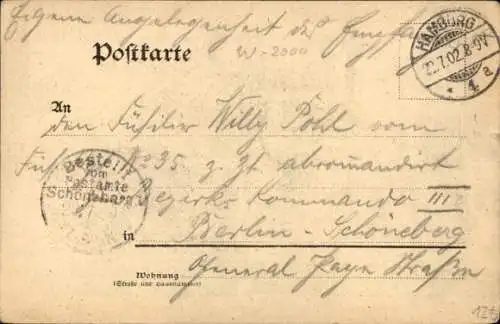 Eigene Angelegenheit des Empfängers
W-2000
Postkarte
HAMBURG
22.7.02.8-9V
* 1 a
An
den Füsilier Willy Pohl vom
Füs. No 35 z. Zt. abkommandiert
Bestellt
vom
Postamte
Schöneberg
Bezirks Kommando III
in Berlin-Schöneberg
General Pape Straße
Wohnung
(Straße und Hausnummer)